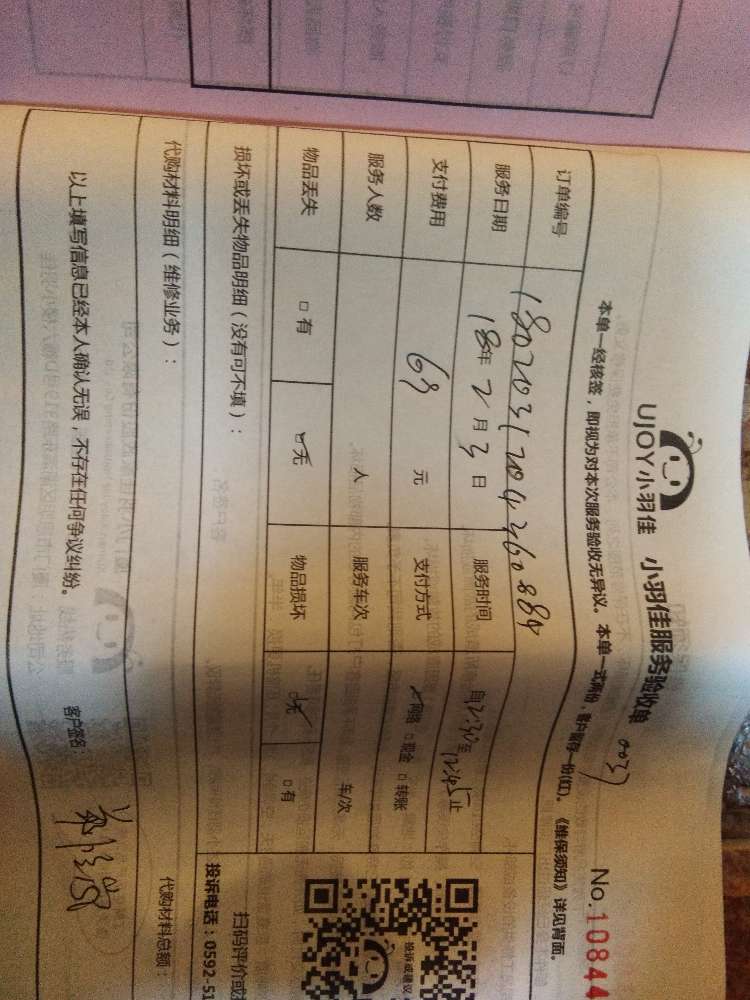 UJOY小羽佳 小羽佳服务验收单 0037 No.10844
本单一经核签，即视为对本次服务验收无异议。本单一式两份，客户留存一份(红)。《维保须知》详见背面。
订单编号 180203120436088
服务日期 18年2月3日 服务时间 自 至 12:45止
支付费用 69元 支付方式 网络 □现金 □转账
服务人数 人 服务车次 车/次
物品丢失 □有 ☑无 物品损坏 ☑无 □有
损坏或丢失物品明细（没有可不填）：
代购材料明细（维修业务）： 代购材料总额：
以上填写信息已经本人确认无误，不存在任何争议纠纷。 客户签名：
投诉或建议
扫码评价或
投诉电话：0592-51